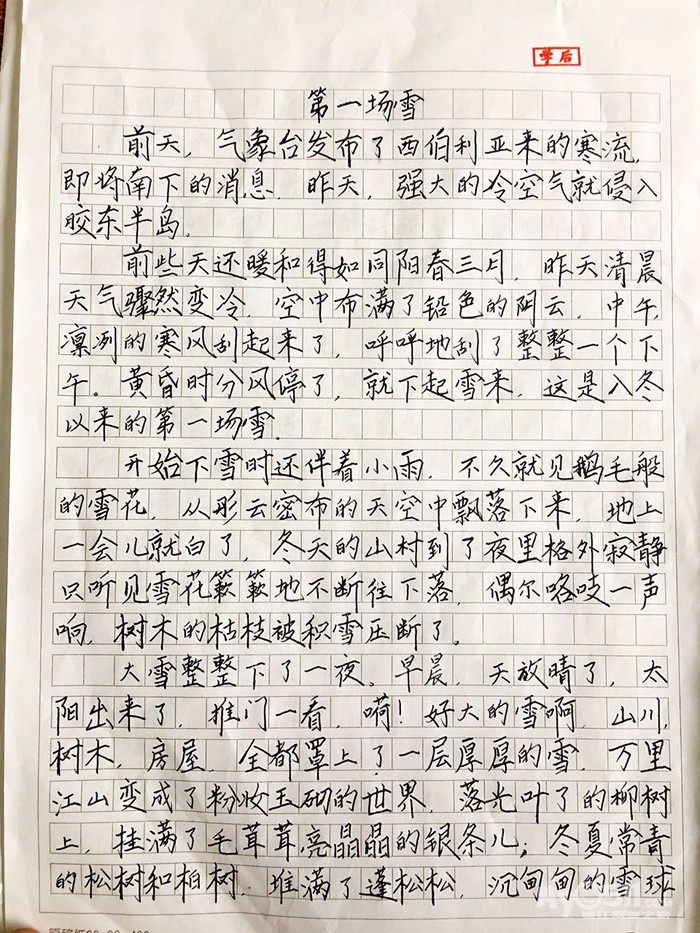 学后
第一场雪
前天，气象台发布了西伯利亚来的寒流，
即将南下的消息．昨天，强大的冷空气就侵入
胶东半岛．
前些天还暖和得如同阳春三月，昨天清晨
天气骤然变冷．空中布满了铅色的阴云．中午，
凛冽的寒风刮起来了，呼呼地刮了整整一个下
午。黄昏时分风停了，就下起雪来．这是入冬
以来的第一场雪．
开始下雪时还伴着小雨．不久就见鹅毛般
的雪花．从彤云密布的天空中飘落下来．地上
一会儿就白了，冬天的山村到了夜里格外寂静
只听见雪花簌簌地不断往下落．偶尔咯吱一声
响，树木的枯枝被积雪压断了。
大雪整整下了一夜。早晨，天放晴了，太
阳出来了，推门一看，嗬！好大的雪啊，山川，
树木，房屋．全都罩上了一层厚厚的雪．万里
江山变成了粉妆玉砌的世界．落光叶了的柳树
上，挂满了毛茸茸亮晶晶的银条儿；冬夏常青
的松树和柏树．堆满了蓬松松．沉甸甸的雪球